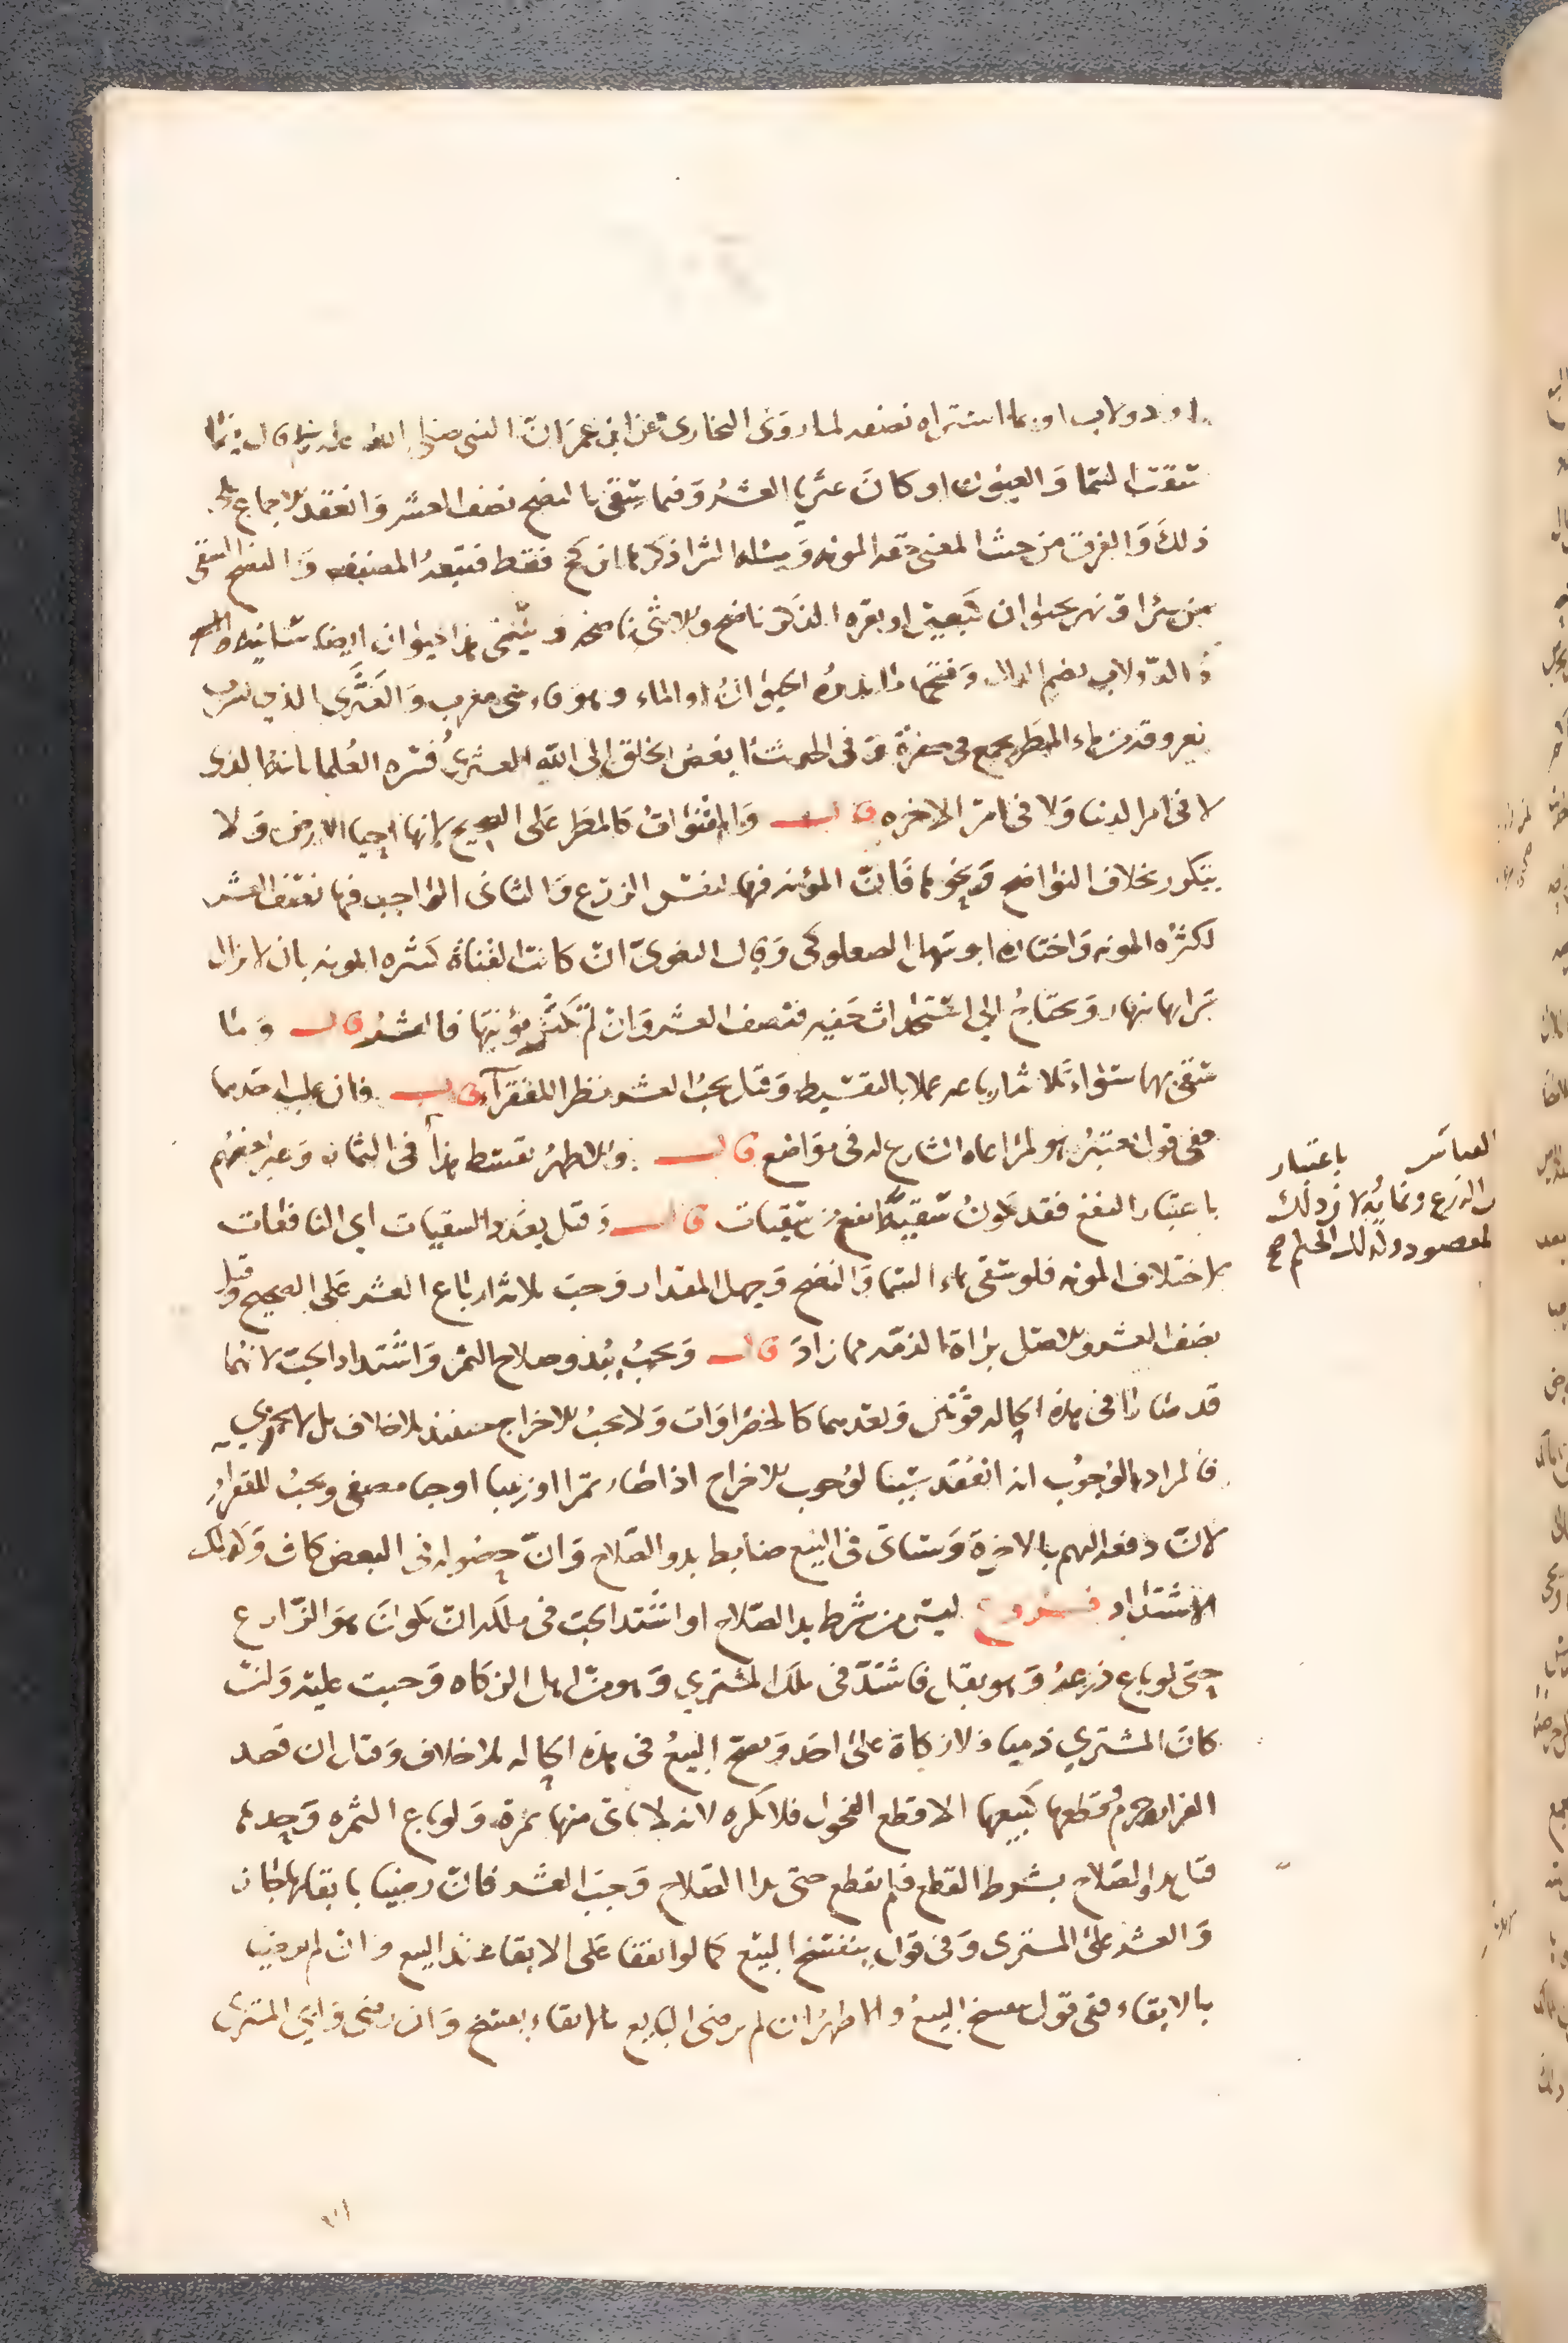 او دولاب او بما اشتراه نصفه لما روى البخارى عن ابن عمر ان النبي صلى الله عليه وسلم قال فيما
سقت السما والعيون او كان عثريا العشر وفيما سقى بالنضح نصف العشر وانعقد الاجماع على
ذلك والفرق من حيث المعنى المونه ومسله الشرا ذكرها ابن كج فقط فتبعه المصنف والنضح السقى
من بئر او نهر بحيوان كبعير او بقره الذكر ناضح وللانثى ناضحه ويسمى هذا الحيوان ايضا سانيه
والدولاب بضم الدال وفتحها ما يديره الحيوان او الماء وهو فارسى معرب والعثرى الذي يشرب
بعروقه من ماء المطر يجمع في حفرة وفى الحديث ابغض الخلق الى الله العثري فسره العلما بانه الذى
لا فى امر الدنيا ولا فى امر الاخره قال والقنوات كالمطر على الصحيح لانها احيا الارض ولا
يتكرر بخلاف النواضح ونحوها فان المؤنه فيها لنفس الزرع والثانى الواجب فيها نصف العشر
لكثره المونه واختاره ابو سهل الصعلوكى وقال البغوى ان كانت القناة كثيره المونه بان لا يزال
ترابها ينهار ويحتاج الى استحداث حفيره فنصف العشر وان لم تكثر مؤنتها فالعشر قال وما
سقى بهما سواء ثلاثه ارباعه عملا بالتقسيط وقيل يجب العشر نظرا للفقرآ قال فان غلب احدهما
ففى قول يعتبر هو لمراعاه الشارع له فى مواضع قال والاظهر تقسط هذا فى الثمان وغيرهم
باعتبار النفع فقد تكون سقية انفع من سقيات قال وقيل بعدد السقيات اي النافعات
لاختلاف المونه فلو سقى بماء السما والنضح وجهل المقدار وجب ثلاثه ارباع العشر على الصحيح وقيل
نصف العشر وللاصل براة الذمه مما زاد قال ويجب ببدو صلاح الثمر واشتداد الحب لانهما
قد صارا فى هذه الحاله قوتين وقبلهما كالخضراوات ولا يجب للاخراج حينئذ بلا خلاف بل لا يجزي
فالمراد بالوجوب انه انعقد سببا لوجوب للاخراج اذا صار تمرا او زبيبا او حبا مصفى ويجب للفقرا
لان دفعه اليهم بالاخرة وسياتى فى البيع ضابط بدو الصلاح وان حصوله فى البعض كاف وكذلك
الاشتداد فروع ليس من شرط بدو الصلاح او اشتداد الحب فى ملكه ان يكون هو الزارع
حتى لو باع زرعه وهو بقل فاشتد فى ملك المشتري وهو من اهل الزكاه وجبت عليه وان
كان المشتري ذميا فلا زكاة على احد وصح البيع فى هذه الحاله بلا خلاف وقال ان قصد
الفرار حرم وقطعها كبيعها الا قطع الفحول فلا يكره لانه لا ياتى منها ثمرة ولو باع الثمره وحدها
قبل بدو الصلاح بشرط القطع فلم يقطع حتى بدا الصلاح وجب العشر فان رضيا بابقائها جاز
والعشر على المشترى وفى قول ينفسخ البيع كما لو اتفقا على الابقا عند البيع وان لم يرضيا
بالابقاء ففى قول يفسخ البيع والاظهر ان لم يرض البايع بالابقاء يفسخ وان رضى وابى المشترى
القياس باعتبار
الزرع ونمايه لان ذلك
المقصود وكذلك الحكم صح